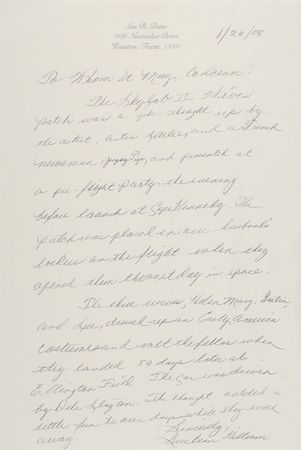 Sue R. Bean
1116 Nantucket Drive
Houston, Texas 77057
1/26/08
To Whom It May Concern:
The Skylab II Wives
patch was a joke thought up by
the artist, and a French
newsman, and presented at
a pre-flight party the evening
before launch at Cape Kennedy. The
patch was placed in our husband's
lockers on the flight when they
opened them the next day in space.
The three wives, Helen Mary, Julia,
and Sue, dressed up in Early American
costumes and met the fellows when
they landed 59 days later at
Ellington Field. The car was driven
by Deke Slayton. The thought added a
little fun to our days while they were
away.
Sincerely,
Sue Bean